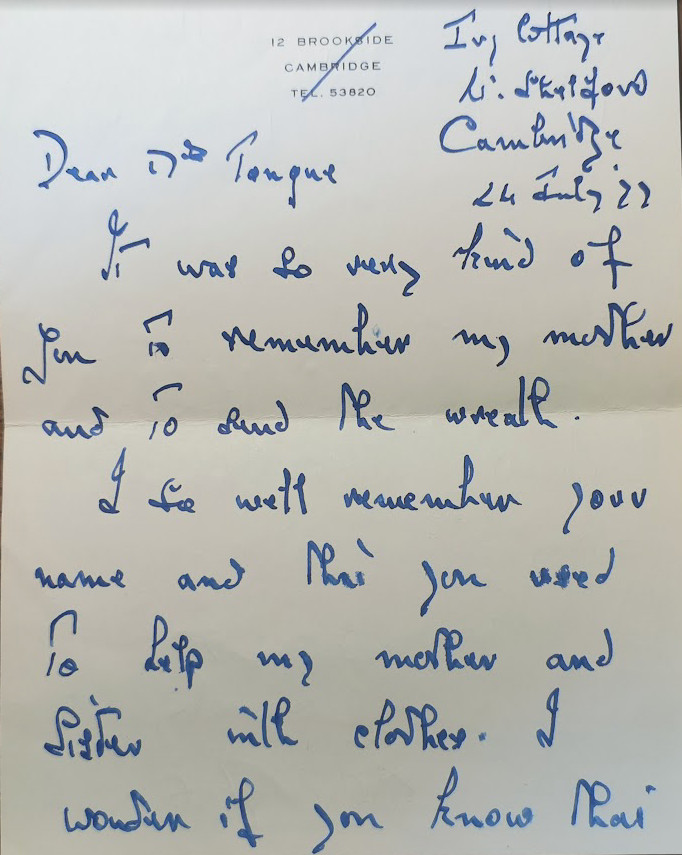 12 BROOKSIDE
CAMBRIDGE
TEL. 53820
Ivy Cottage
Lt. Shelford
Cambridge
24 July 77
Dear Mrs Tongue
It was so very kind of
you to remember my mother
and to send the wreath.
I so well remember your
name and that you used
to help my mother and
sister with clothes. I
wonder if you know that